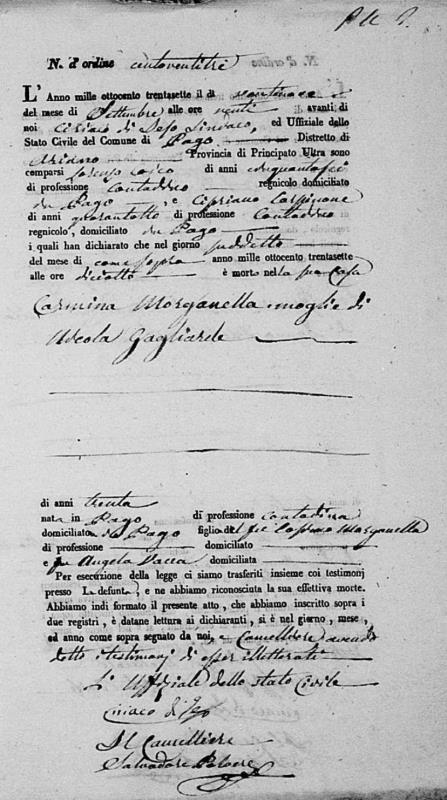 N. d'ordine centoventitre
L'Anno mille ottocento trentasette il dì ventinove
del mese di Settembre alle ore venti avanti di
noi Ciriaco di Leso Sindaco, ed Uffiziale dello
Stato Civile del Comune di Pago Distretto di
Ariano Provincia di Principato Ultra sono
comparsi Lorenzo di anni cinquantasei
di professione Contadino regnicolo domiciliato
in Pago, e Cipriano Carpinone
di anni quarantotto di professione Contadino
regnicolo, domiciliato in Pago
i quali han dichiarato che nel giorno suddetto
del mese di come sopra anno mille ottocento trentasette
alle ore diciotto è morta nella sua casa
Carmina Morganella moglie di
Nicola Gagliarde
di anni trenta
nata in Pago di professione contadina
domiciliata in Pago figlia del fu Morganella
di professione domiciliato
e fu Angela Vacca domiciliata
Per esecuzione della legge ci siamo trasferiti insieme coi testimonj
presso La defunta, e ne abbiamo riconosciuta la sua effettiva morte.
Abbiamo indi formato il presente atto, che abbiamo inscritto sopra i
due registri, è datane lettura ai dichiaranti, si è nel giorno, mese,
ed anno come sopra segnato da noi, e Cancelliere avendo
detto i testimonj di esser illetterati
L'Uffiziale dello stato Civile
Ciriaco di
Il Cancelliere
Salvadore